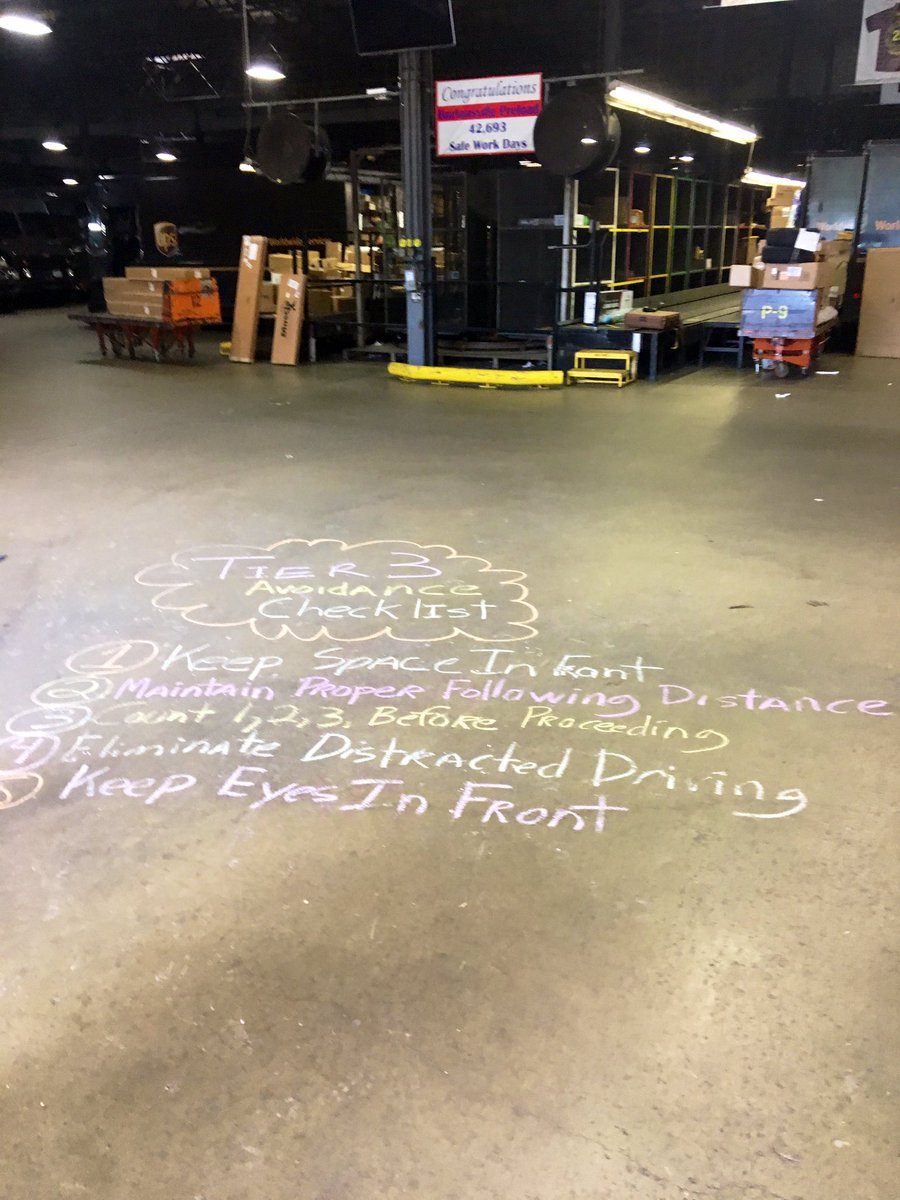 Congratulations
Preload
42,693
Safe Work Days
ups
Worldwide Services
P-9
TIER 3
Avoidance
Checklist
1 Keep Space In Front
2 Maintain Proper Following Distance
3 Count 1, 2, 3, Before Proceeding
4 Eliminate Distracted Driving
5 Keep Eyes In Front